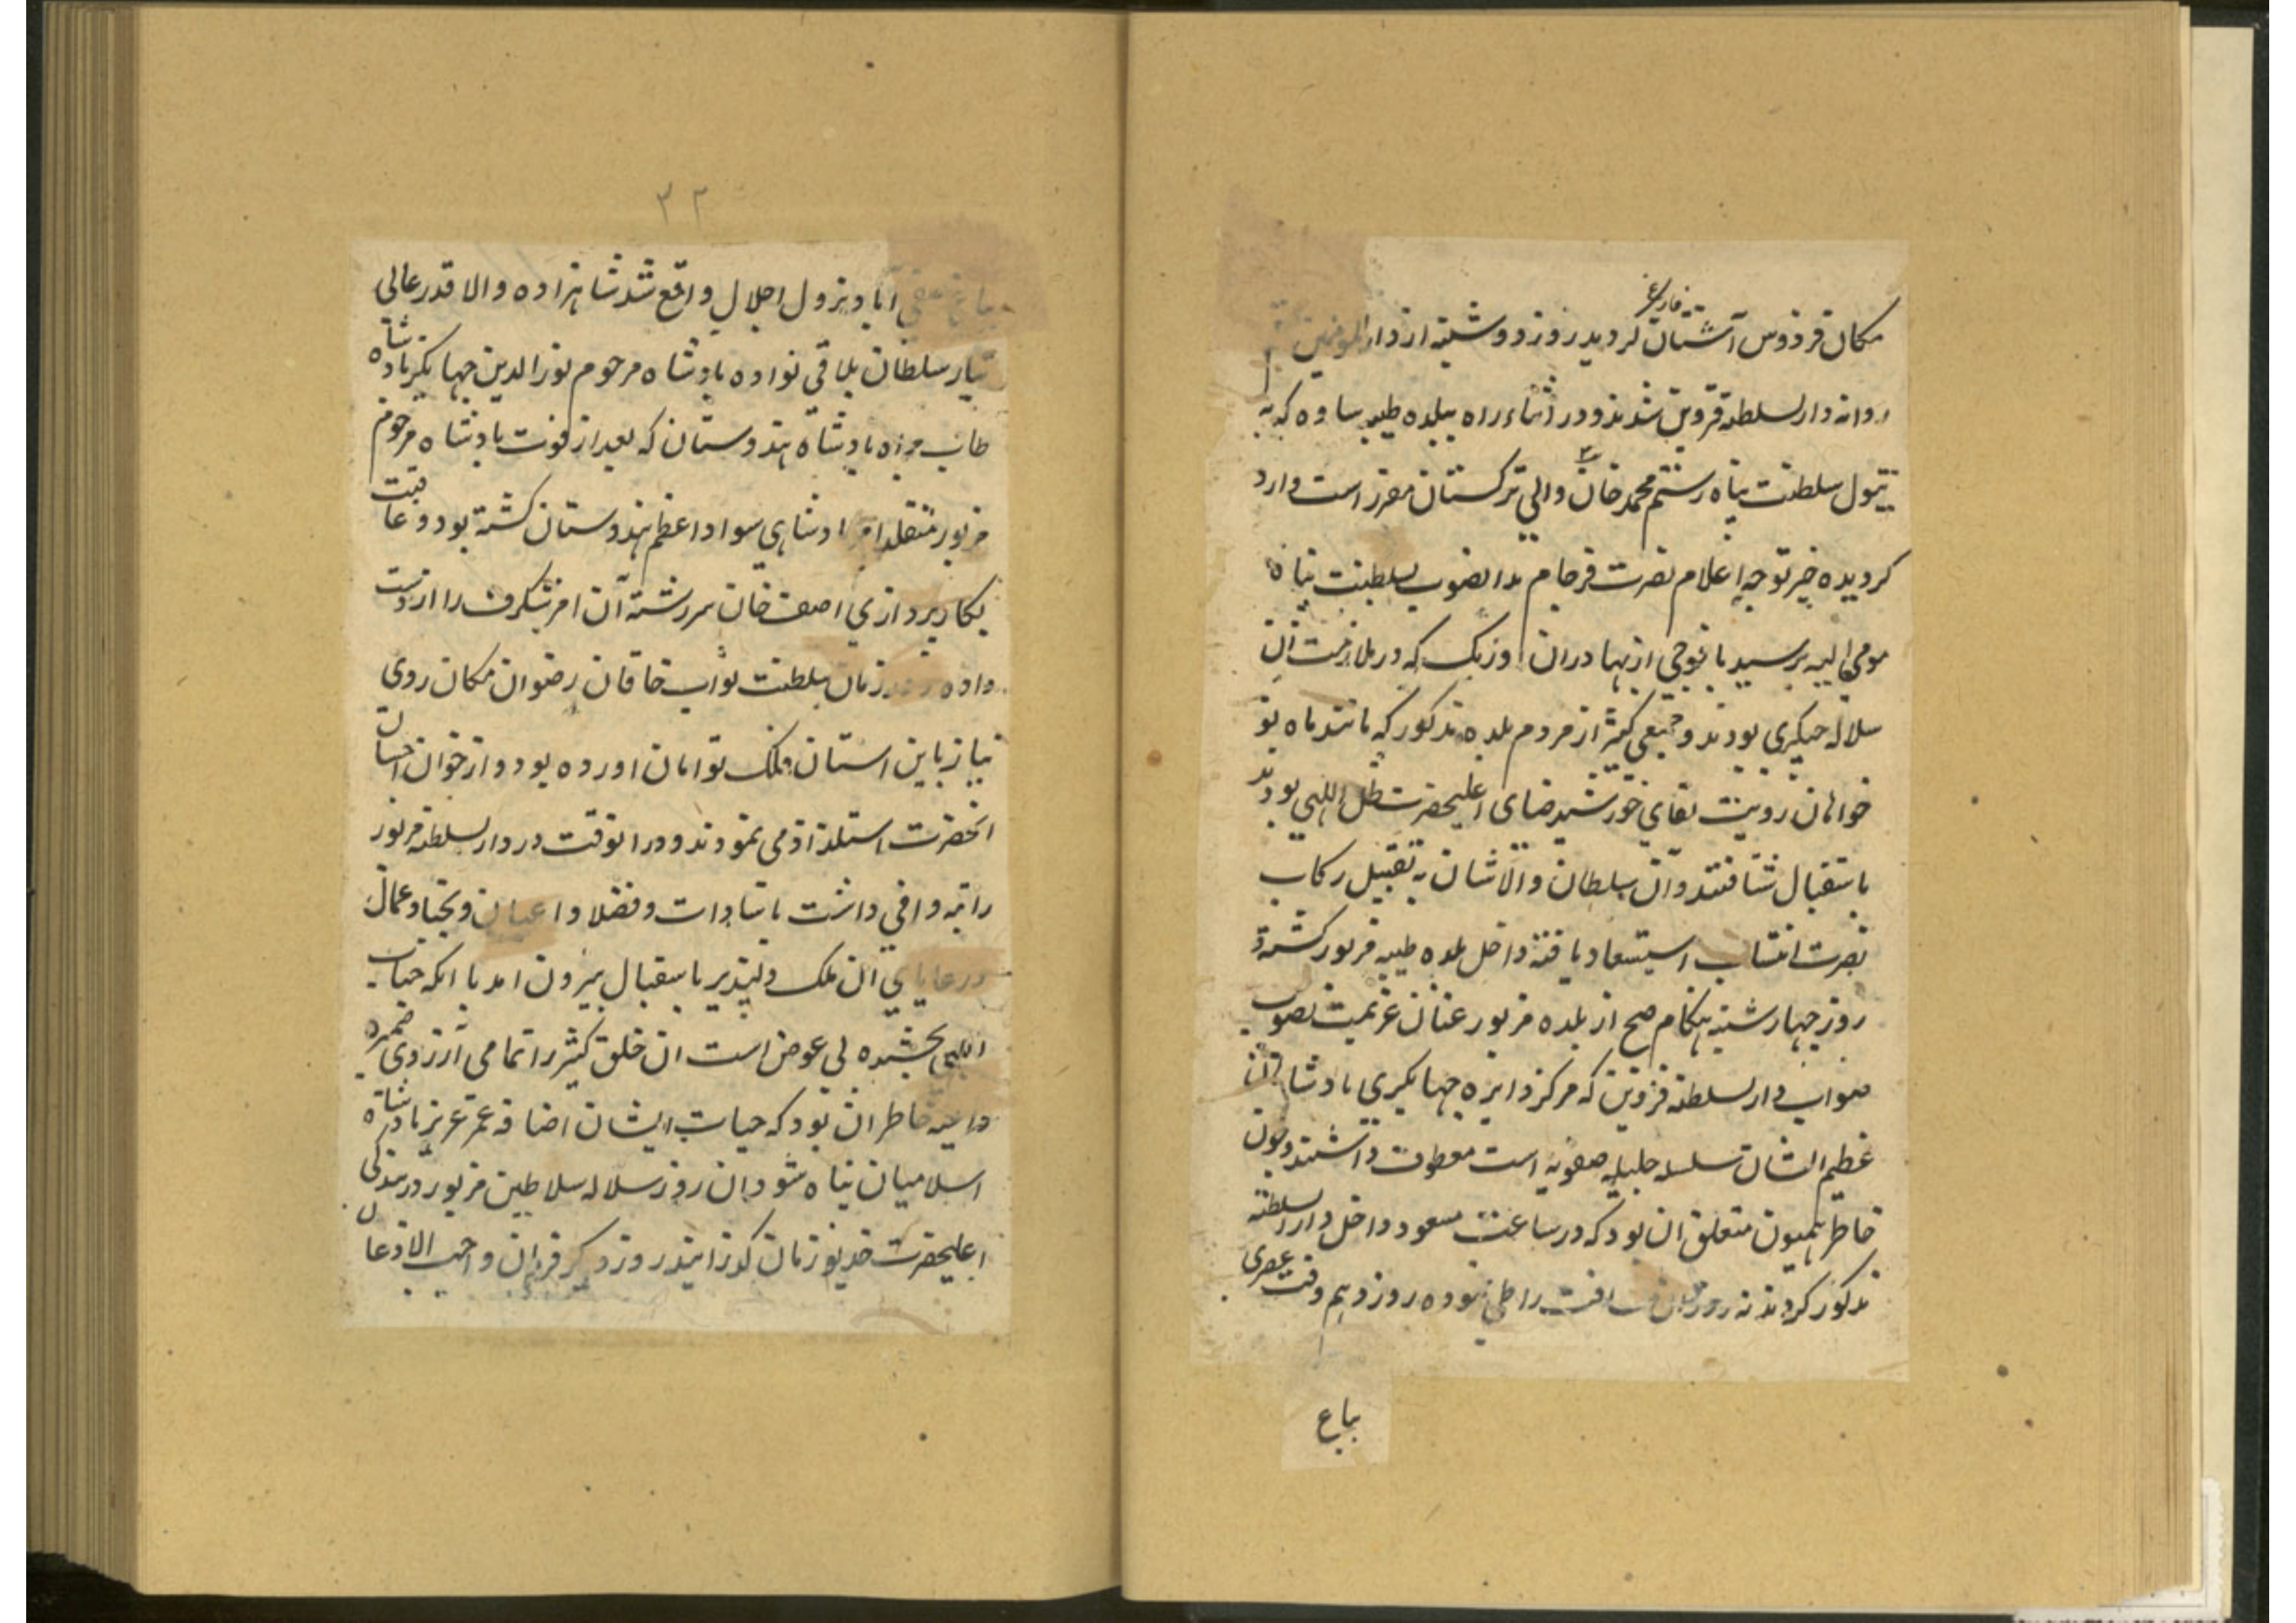 مکان فردوس آشتان فارغ کردید روز دوشنبه از دار المومنین
روانه دار لسلطنه قزوین شدند و در اثناء راه ببلده طیبه ساوه که به
تیول سلطنت پناه رستم محمد خان والی ترکستان مقرر است وارد
کردیده خبر توجه اعلام نصرت فرجام بدانصوب بسلطنت پناه
مومی الیه رسید با فوجی از بهادران اوزبک که در ملازمت آن
سلاله چنکیزی بودند و جمعی کثیر از مردم بلده مذکور که مانند ماه نو
خواهان رویت لقای خورشید ضیای اعلیحضرت ظل اللهی بودند
باستقبال شتافتند و آن سلطان والاشان به تقبیل رکاب
نصرت انتساب استسعاد یافته داخل بلده طیبه مزبور کشته
روز چهارشنبه هنکام صبح از بلده مزبور عنان عزیمت بصوب
صواب دار لسلطنه قزوین که مرکز دایره جهانکیری پادشاهان
عظیم الشان سلسله جلیله صفویه است معطوف داشتند و چون
خاطر همیون متعلق ان بود که در ساعت مسعود داخل دار السلطنه
مذکور کردند نه روز مسافت را طی نموده روز دهم وقت عصری
بباغ
۳۲
بباغ آباد نزول اجلال واقع شد شاهزاده والا قدر عالی
تبار سلطان بلاقی نواده پادشاه مرحوم نورالدین جهانکیر پادشاه
طاب ثراه پادشاه هندوستان که بعد از فوت پادشاه مرحوم
مزبور متقلد امر پادشاهی سواد اعظم هندوستان کشته بود و عاقبت
بکارپردازی اصف خان سررشته آن امر شکرف را از دست
داده در زمان سلطنت نواب خاقان رضوان مکان روی
نیاز باین استان فلک توامان اورده بود و از خوان احسان
انحضرت استلذاذ می نمودند و در انوقت در دار لسلطنه مزبور
راتبه وافی داشت با سادات و فضلا و اعیان و نجبا و عمال
و رعایای ان ملک دلپذیر باستقبال بیرون امد با انکه حیات
اللهی بخشیده بی عوض است ان خلق کثیر را تمامی آرزوی ضمیر و
داعیه خاطر ان بود که حیات ایشان اضافه عمر عزیز پادشاه
اسلامیان پناه شود ان روز سلاله سلاطین مزبور در بندکی
اعلیحضرت خدیو زمان کذرانید روز دیکر فرمان واجب الاذعان